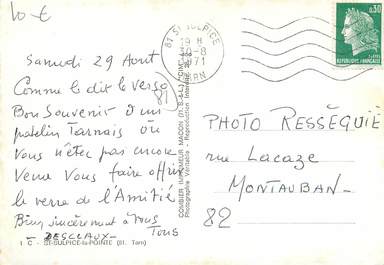 10 €
81 ST SULPICE
19 H
30-8
1971
TARN
0,30
Samedi 29 Aout
Comme le dit le verso
81
Bon Souvenir d'un
patelin Tarnais où
Vous n'êtes pas encore
venu Vous faire offrir
le verre de l'Amitié
Bien sincèrement à Vous
Tous
- DESCLAUX -
1 C - ST-SULPICE-la-POINTE (81. Tarn)
COMBIER IMPRIMEUR MACON (71, S.-&-L.) "CIM"
Photographie Véritable - Reproduction Interdite
PHOTO RESSÉGUIÉ
rue Lacaze
MONTAUBAN
82